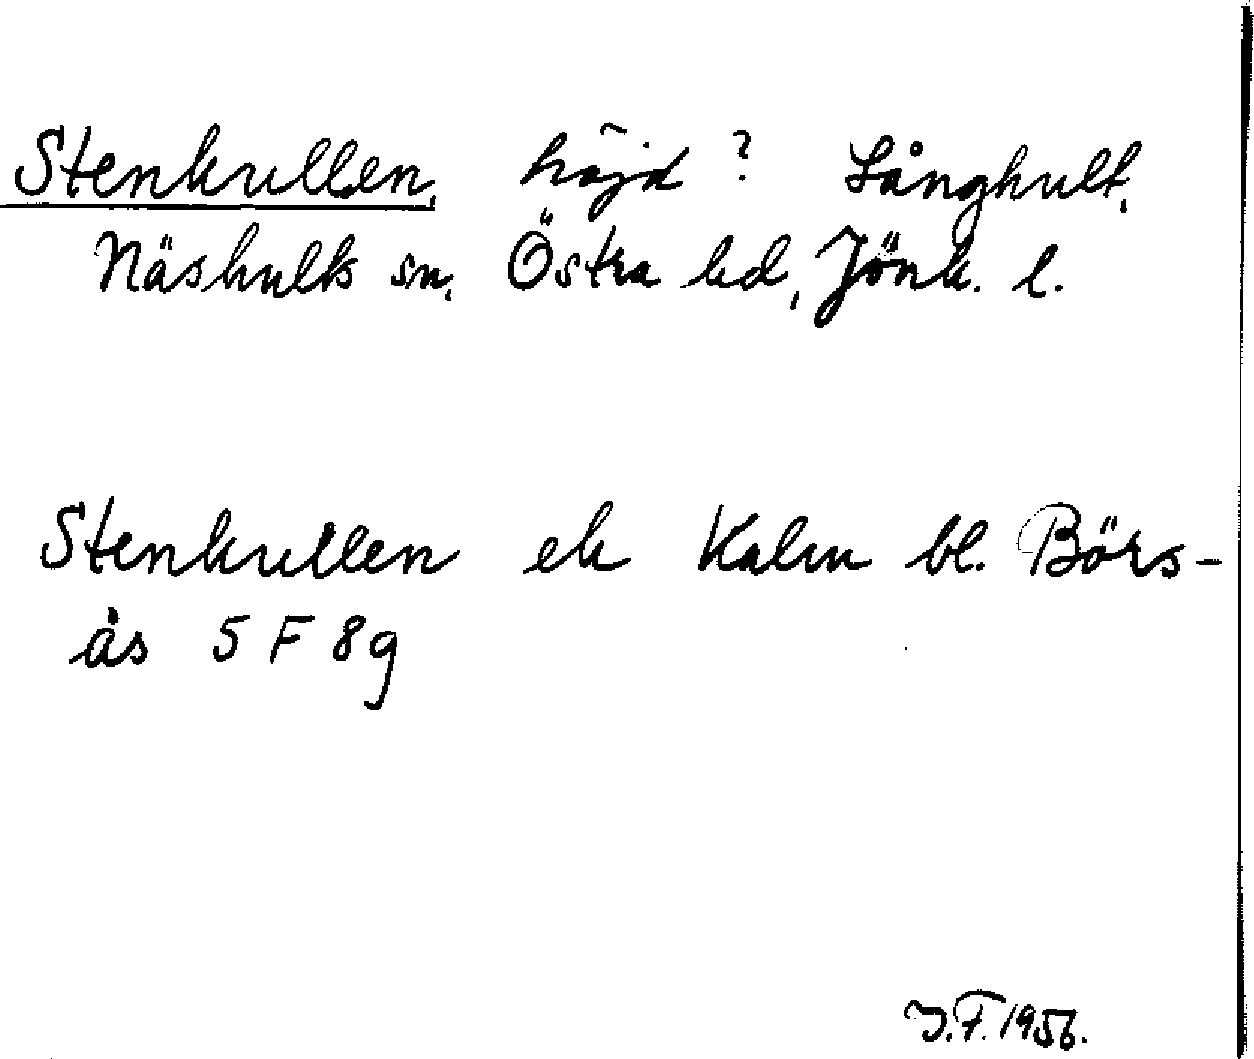 Stenkullen, höjd? Långhult,
Näshults sn, Östra hd, Jönk. l.
Stenkullen ek Kalm bl. Börs-
ås 5 F 8 g
J.F. 1956.